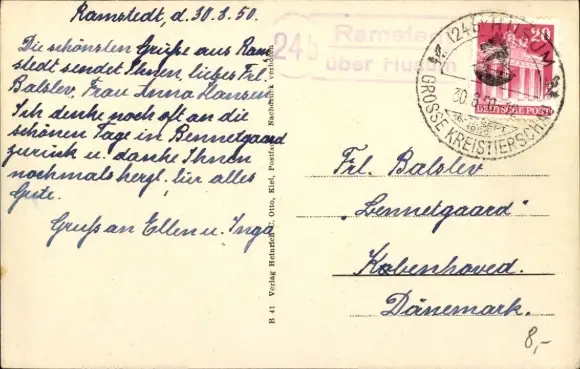 Ramstedt, d. 30.8.50.
Die schönsten Grüße aus Ram
stedt sendet Ihnen, liebes Frl.
Balslev, Frau Anna Hansen
Ich denke noch oft an die
schönen Tage in Bennetgaard
zurück u. danke Ihnen
nochmals herzl. für alles
Gute.
Gruß an Ellen u. Inga
24b
Ramstedt
über Husum
B 41 Verlag Heinrich C. Otto, Kiel, Postfach
Nachdruck verboten
(24b) HUSUM
30.8.50
SEPT.
GROSSE KREISTIERSCHAU
20
DEUTSCHE POST
Frl. Balslev
„Bennetgaard"
København
Dänemark.
8,-